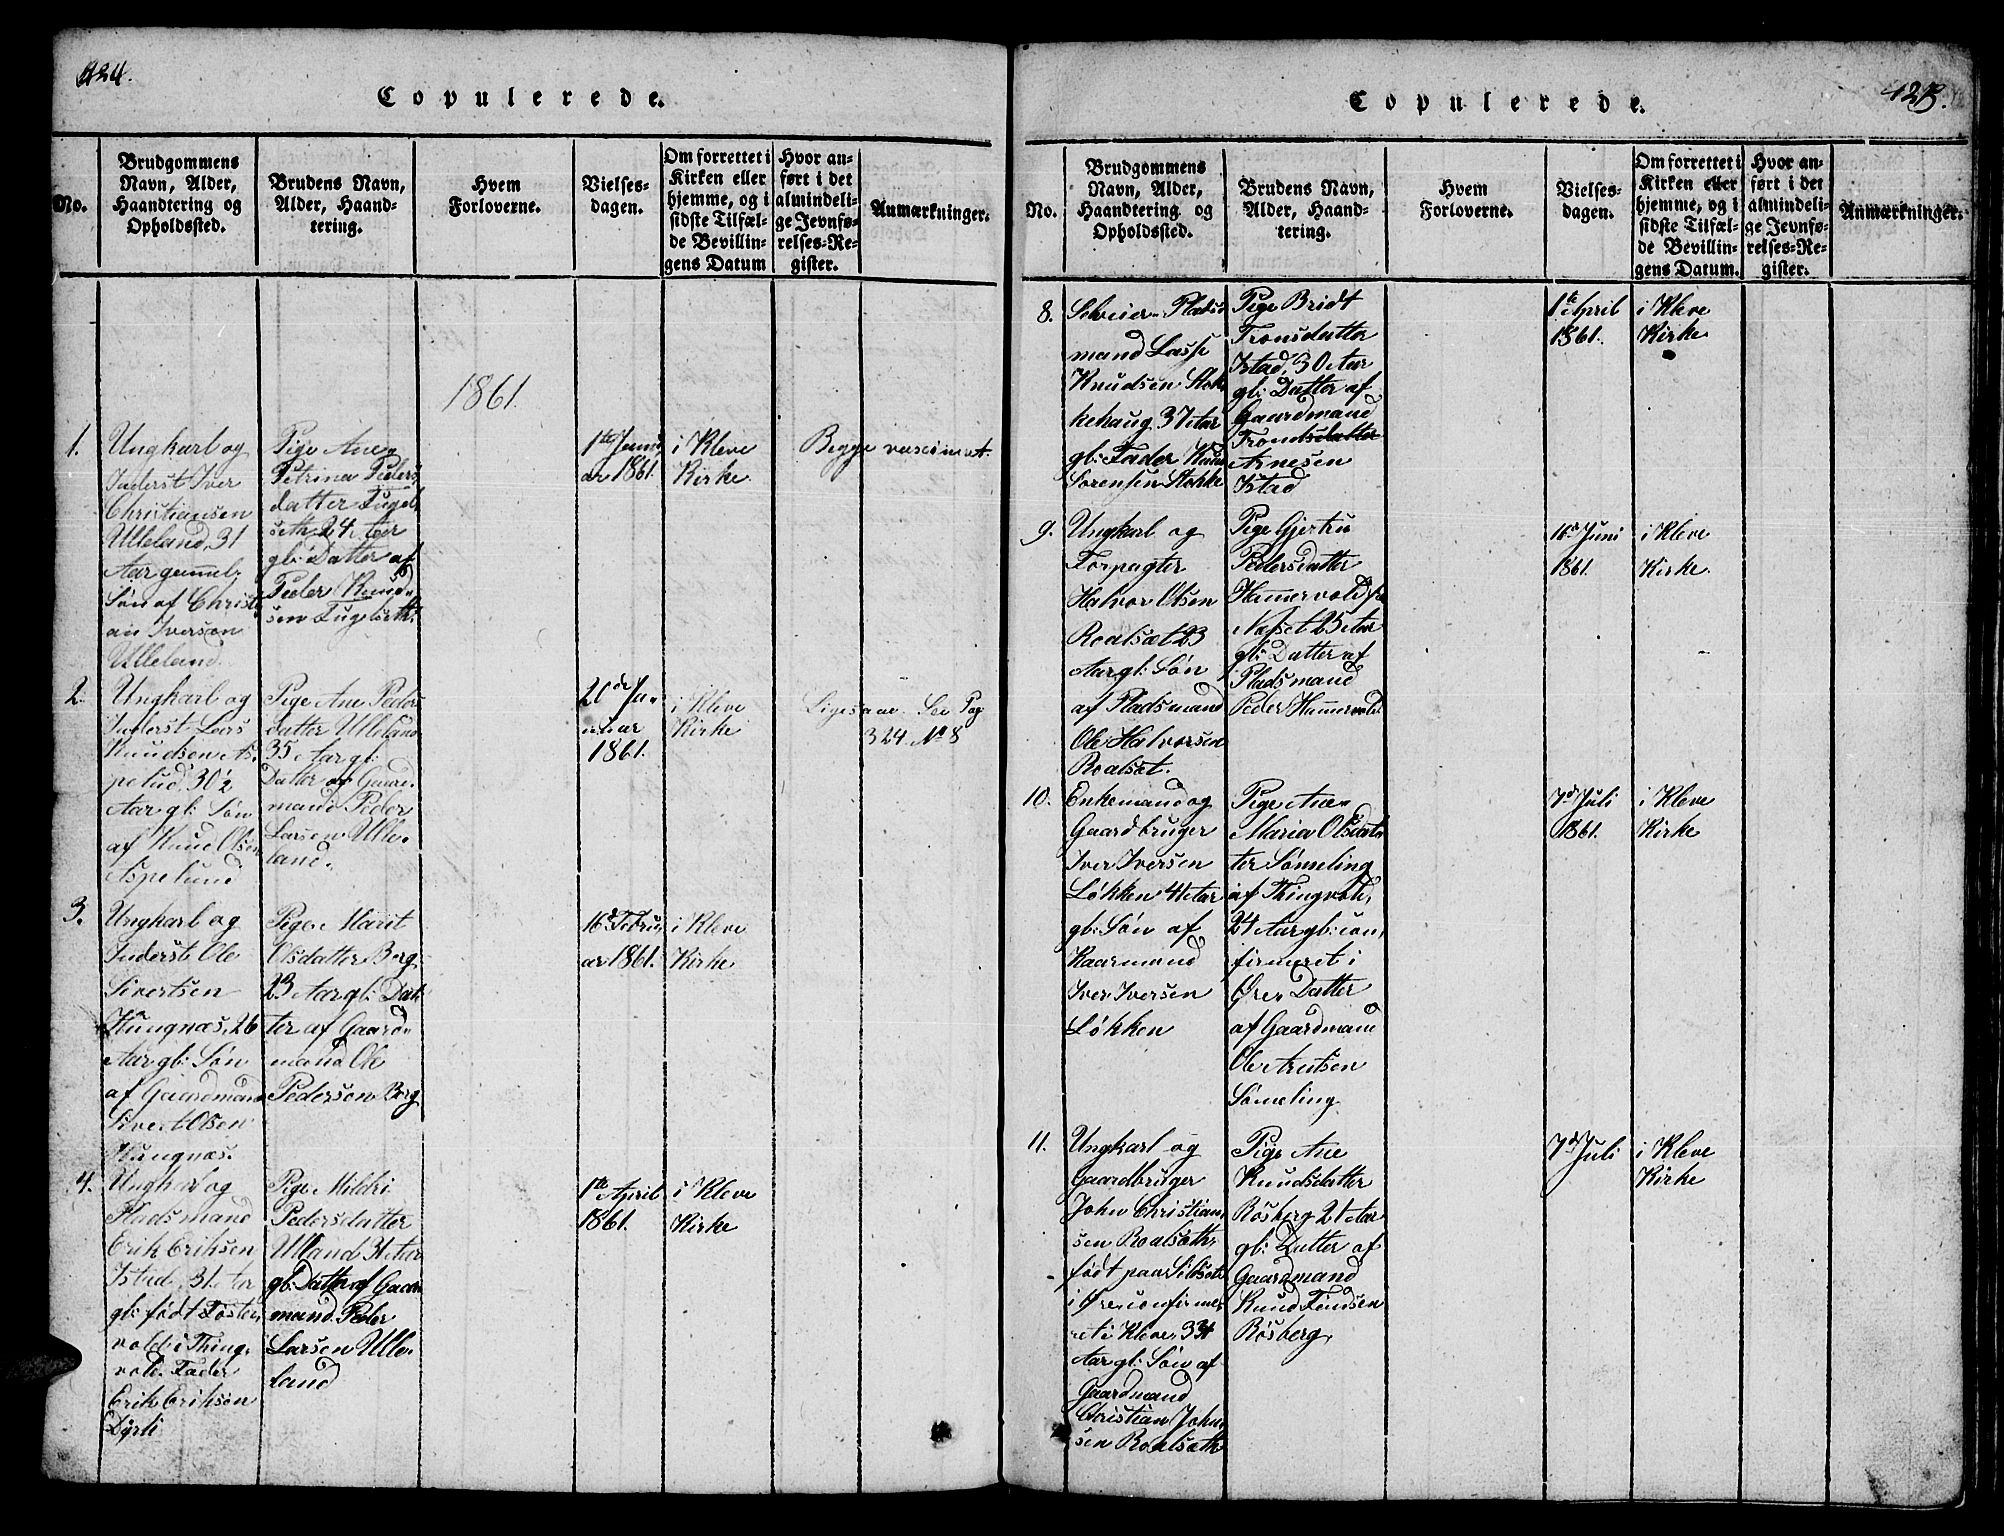 424.
Copulerede.
No.
Brudgommens
Navn, Alder,
Haandtering og
Opholdssted.
Brudens Navn,
Alder, Haand-
tering.
Hvem
Forloverne.
Vielses-
dagen.
Om forrettet i
Kirken eller
hjemme, og i
sidste Tilfæl-
de Bevillin-
gens Datum
Hvor an-
ført i det
almindeli-
ge Jevnfø-
relses-Re-
gister.
Anmærkninger.
1861.
1.
Ungkarl og
Inderst Iver
Christiansen
Ulleland, 31
Aar gammel,
Søn af Christi
an Iversen
Ulleland.
Pige Ane
Petrina Peders
datter Fugel
seth 24 Aar
gl: Datter af
Peder Knud-
sen Fugelseth.
1ste Janu
ar 1861.
i Kleve
Kirke
Begge vaccineret
2.
Ungkarl og
Inderst Lars
Knudsen As-
pelund, 30½
Aar gl: Søn
af Knud Olsen
Aspelund
Pige Ane Peders
datter Ulleland
35 Aar gl:
Datter af Gaard
mand Peder
Larsen Ulle-
land.
20de Ja-
nuar
1861.
i Kleve
Kirke
Ligesaa. See Pag
324 No 8
3.
Ungkarl og
Inderst Ole
Sivertsen
Hungnæs, 26
Aar gl: Søn
af Gaardmand
Sivert Olsen
Hungnæs.
Pige Marit
Olsdatter Berg
23 Aar gl: Dat
ter af Gaard-
mand Ole
Pedersen Berg
16d Febru
ar 1861.
i Kleve
Kirke
4.
Ungkarl og
Pladsmand
Erik Eriksen
Istad, 31 Aar
gl: født Fosten
vold i Thing-
vold. Fader
Erik Eriksen
Dyrli
Pige Mildri
Pedersdatter
Ulland 31 Aar
gl: Datter af Gaard
mand Peder
Larsen Ulle-
land
1ste April
1861.
i Kleve
Kirke
425.
Copulerede.
No.
Brudgommens
Navn, Alder,
Haandtering og
Opholdssted.
Brudens Navn,
Alder, Haand-
tering.
Hvem
Forloverne.
Vielses-
dagen.
Om forrettet i
Kirken eller
hjemme, og i
sidste Tilfæl-
de Bevillin-
gens Datum.
Hvor an-
ført i det
almindeli-
ge Jevnfø-
relses-Re-
gister.
Anmærkninger.
8.
Selveier Plads
mand Lasse
Knudsen Stok
kehaug 37 Aar
gl: Fader Knud
Sørensen Stokke
Pige Bridt
Tronsdatter
Istad, 30 Aar
gl: Datter af
Gaardmand
Trondsdatter
Arnesen
Istad
1te April
1861.
i Kleve
Kirke
9.
Ungkarl og
Forpagter
Halvor Olsen
Roalsæt 23
Aar gl: Søn
af Pladsmand
Ole Halvorsen
Roalset.
Pige Gjertru
Pedersdatter
Hammervold
Næsset 25 Aar
gl: Datter af
Pladsmand
Peder Hammervold
16d Juni
1861.
i Kleve
Kirke.
10.
Enkemand og
Gaardbruger
Iver Iversen
Løkken 41 Aar
gl: Søn af
Kaarmand
Iver Iversen
Løkken
Pige Ane
Maria Olsdat
ter Sømeling
af Thingvold,
24 Aar gl: con,
firmeret i
Øre, Datter
af Gaardmand
Ole Arntsen
Sømeling
7d Juli
1861.
i Kleve
Kirke
11.
Ungkarl og
Gaardbruger
John Christian
sen Roalsæth,
født paa Sildset
i Øre, confirme
ret i Kleve, 33
Aar gl: Søn af
Gaardmand
Christian John
sen Roalsæth
Pige Ane
Knudsdatter
Røsberg 21 Aar
gl: Datter af
Gaardmand
Knud Findsen
Røsberg
7d Juli
i Kleve
Kirke